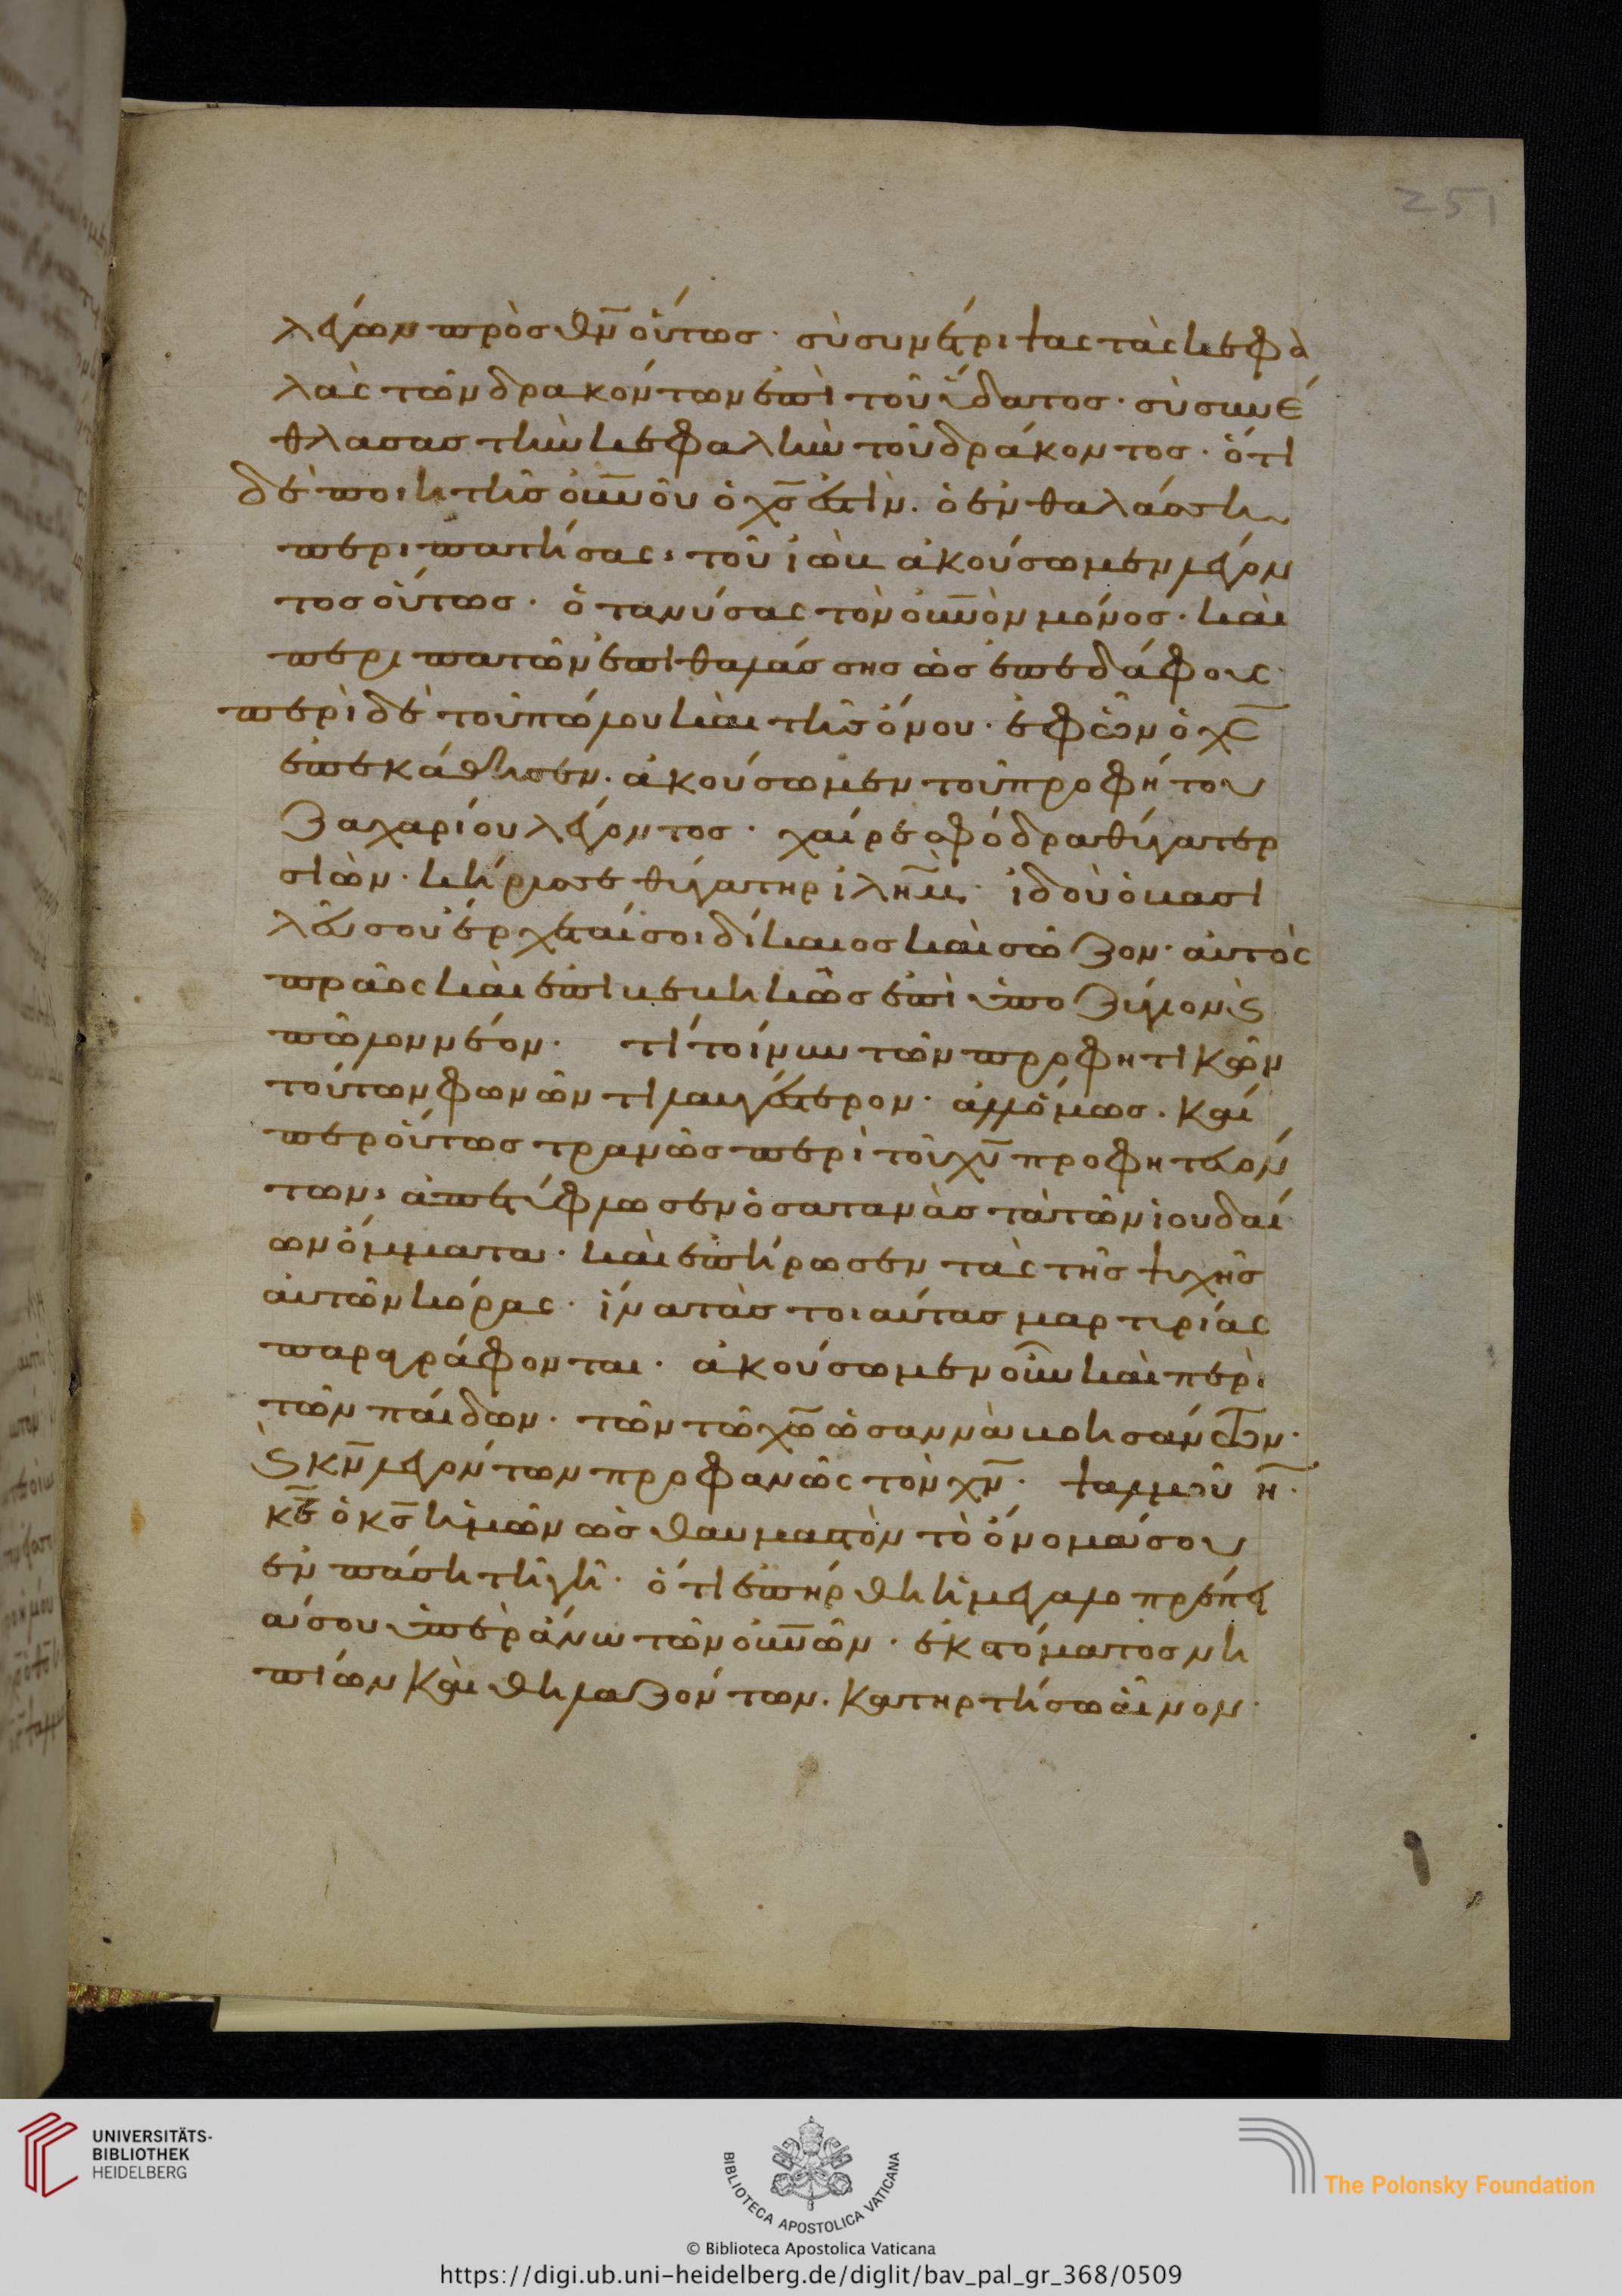 251
λέγων πρὸσ θν̅ οὕτωσ· σὺ συνέτριψας τὰς κεφὰ
λὰς τῶν δρακόντων ἐπὶ τοῦ ὕδατοσ· σὺ συνέ
θλασασ τὴν κεφαλὴν τοῦ δράκοντοσ· ὅτι
δὲ ποιητὴσ οὐν̅οῦ ὁ χσ̅ ἐστὶν. ὁ ἐν θαλάσση
περιπατήσας, τοῦ ἰὼβ ἀκούσωμεν λέγον
τοσ οὕτωσ· ὁ τανύσας τὸν οὐν̅ὸν μόνοσ· καὶ
περιπατῶν ἐπὶ θαλάσσησ ὡσ ἐπ ἐδάφους·
περὶ δὲ τοῦ πώλου καὶ τῆσ ὄνου· ἐφ ὧν ὁ χς̅
ἐπεκάθησεν. ἀκούσωμεν τοῦ προφήτου
ζαχαρίου λέγοντοσ· χαίρε σφόδρα θύγατερ
σιὼν· κήρυσσε θύγατηρ ἰλη̅μ· ἰδοὺ ὁ βασι
λεύσ σου ἔρχεταί σοι δίκαιοσ καὶ σώζον· αὐτὸς
πραῢς καὶ ἐπιβεβηκῶσ ἐπὶ ὑποζύγιον ϗ
πῶλον νέον· τί τοίνυν τῶν προφητικῶν
τούτων φωνῶν τιλαυγέστερον· ἀλλόμωσ. καί
περ οὕτωσ τρανῶσ περὶ τοῦ χυ̅ προφητευόν
των, ἀπετύφλωσεν ὁ σατανὰσ τὰ τῶν ἰουδαί
ων ὄμματα· καὶ ἐπήρωσεν τὰς τῆσ ψυχῆσ
αὐτῶν κόρας· ἵνα τὰσ τοιαύτασ μαρτυρίας
παραγράφονται· ἀκούσωμεν οὖν καὶ περὶ
τῶν παίδων· τῶν τῶ χω̅ ὡσαννὰ βοησάντων·
ϗ κν̅ λεγόντων προφανῶς τὸν χν̅· ψαλμοῦ η̅·
κε̅ ὁ κσ̅ ἡμῶν ὡσ θαυμαστὸν τὸ ὄνομά σου
ἐν πάση τῆ γῆ· ὅτι ἐπήρθη ἡ μεγαλοπρέπει
α σου ὑπεράνω τῶν οὐν̅ῶν· ἐκ στόματοσ νη
πίων καὶ θηλαζόντων. κατηρτήσω αἶνον·
UNIVERSITÄTS-
BIBLIOTHEK
HEIDELBERG
BIBLIOTECA APOSTOLICA VATICANA
The Polonsky Foundation
© Biblioteca Apostolica Vaticana
https://digi.ub.uni-heidelberg.de/diglit/bav_pal_gr_368/0509